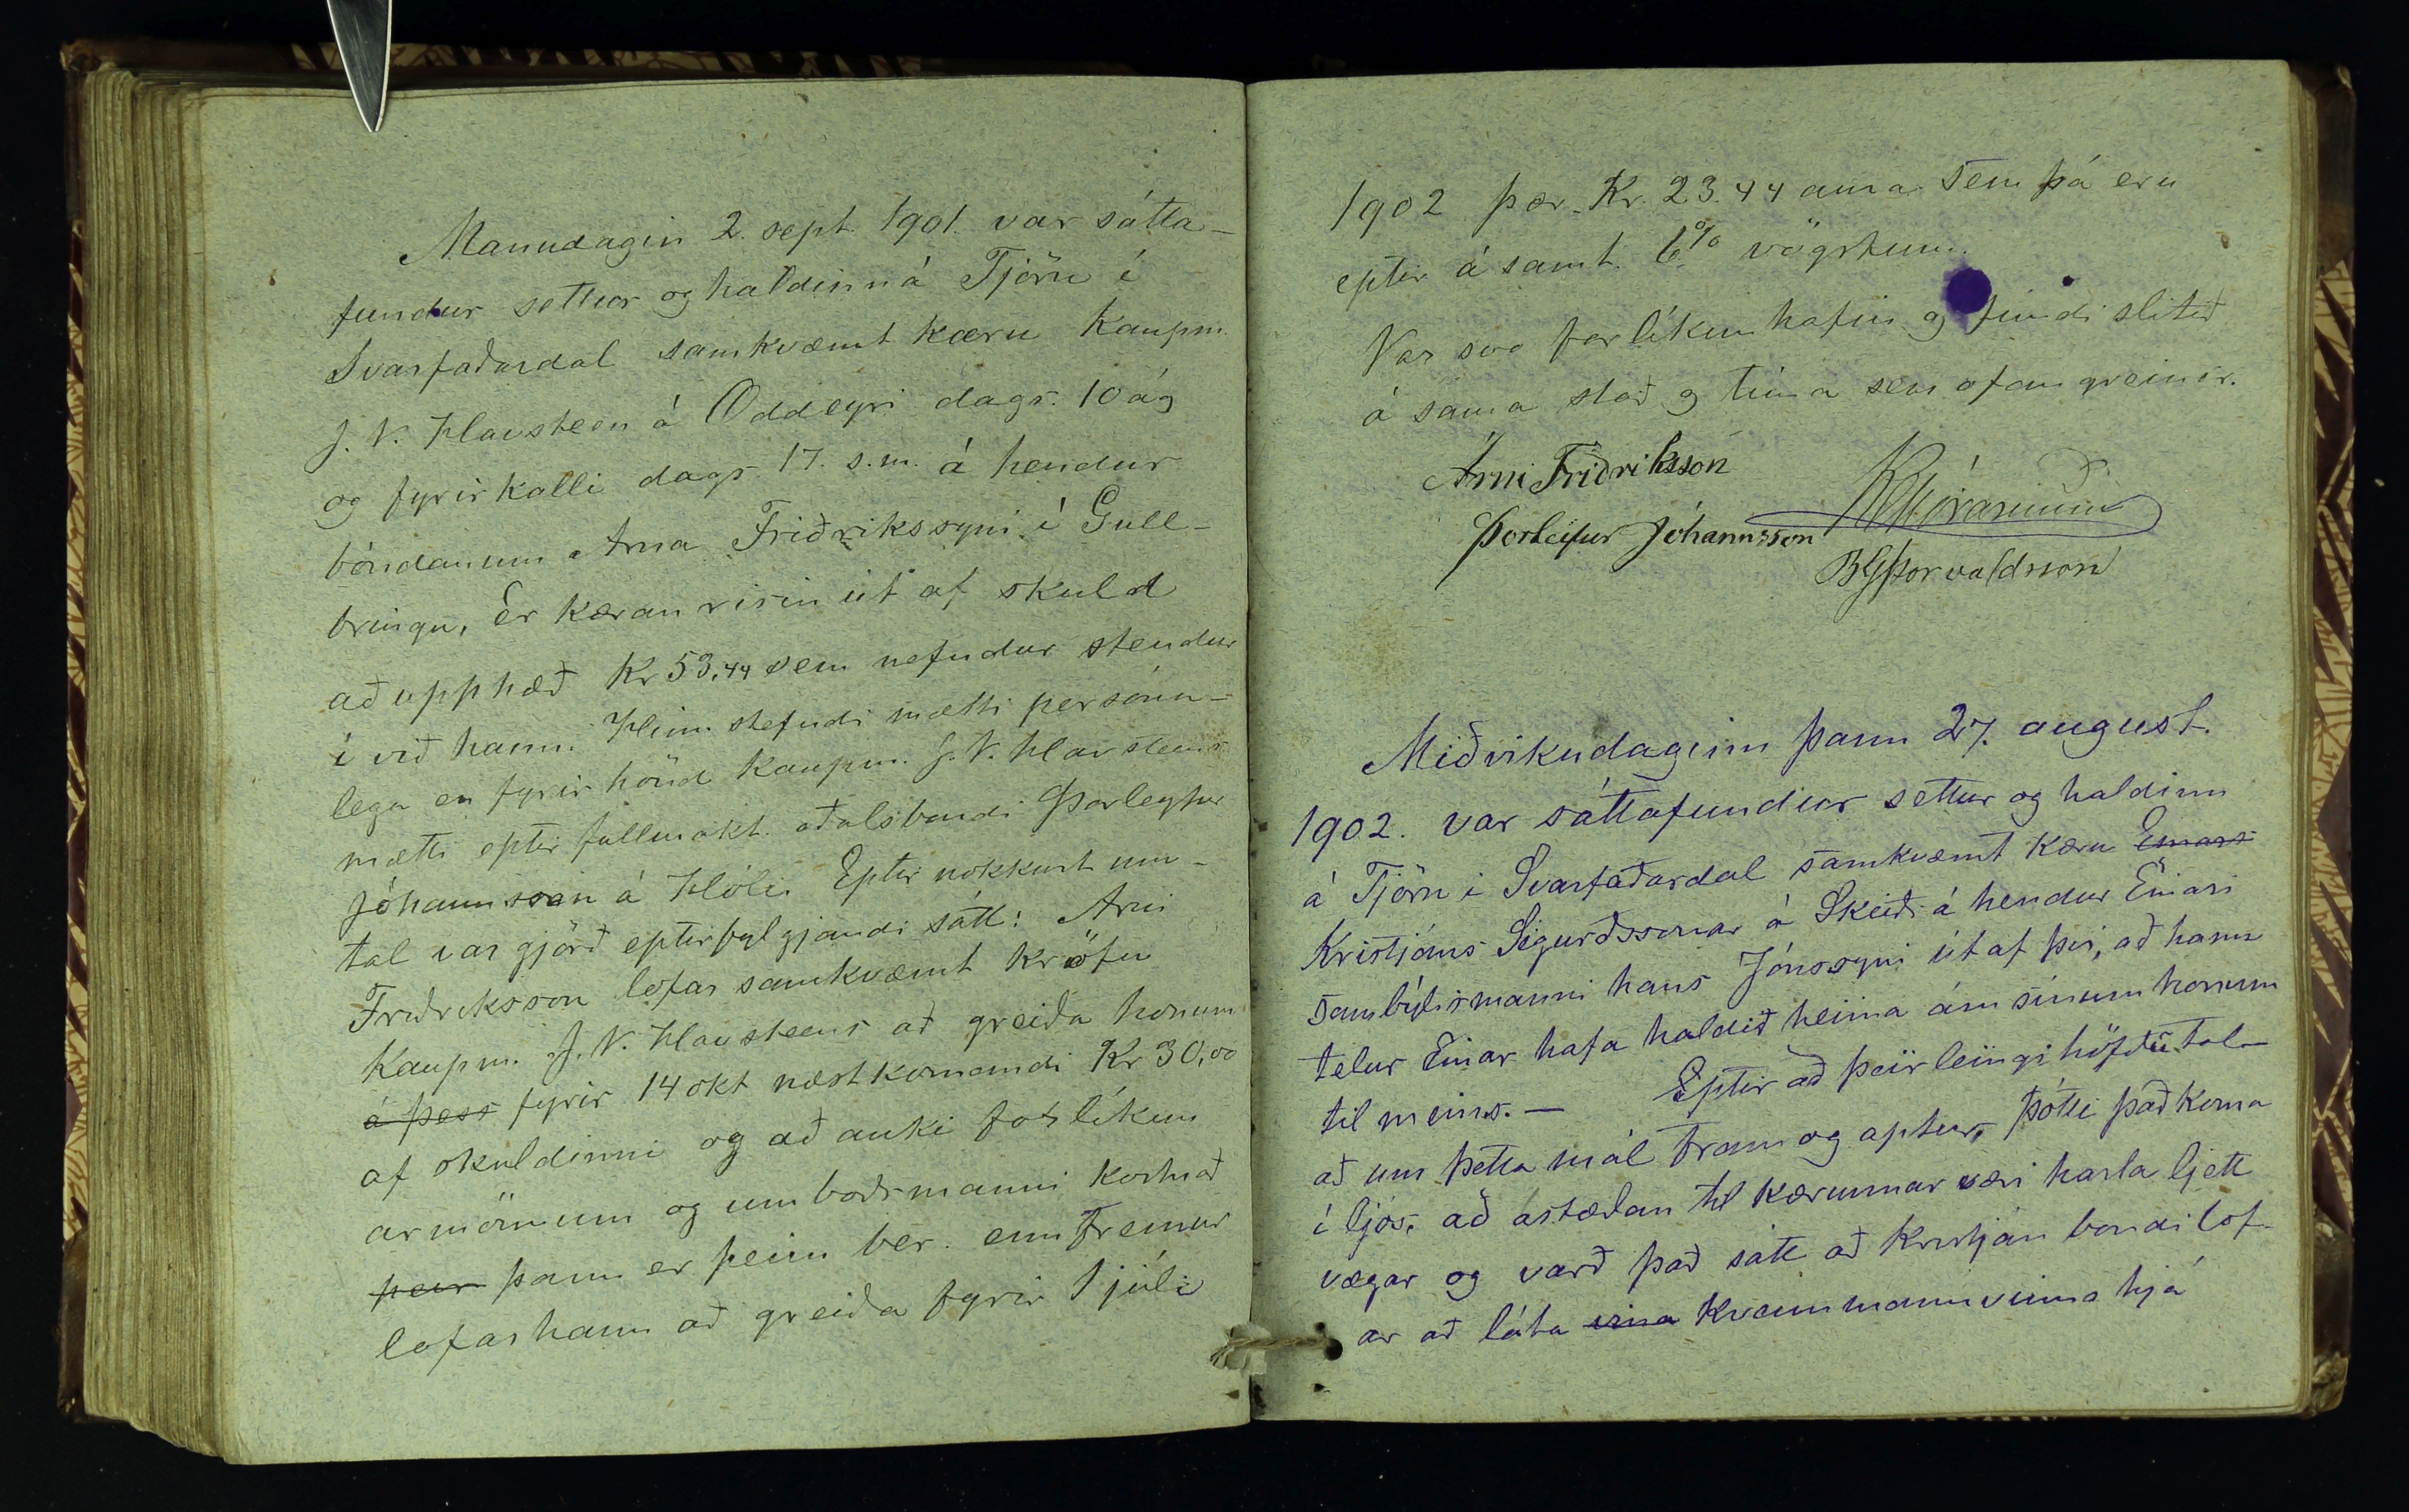 Manudagin 2. sept. 1901. var sátta-
fundur settur og haldinn á Tjörn í
Svarfaðardal samkvæmt kæru Kaupm.
J. V. Havsteen á Oddeyri dags. 10 ág
og fyrirkalli dags 17. s.m. á hendur
bóndanum Árna Friðrikssyni í Gull-
bringu, Er kæran risin út af skuld
að upphæð Kr 53.44 sem nefndur stendur
í við hann. Hinn stefndi mætti persónu-
lega en fyrir hönd Kaupm. J. V. Havsteens
mætti eptir fullmakt óðalsbondi Þorleyfur
Jóhannsson á Hóli. Eptir nokkurt um-
tal var gjörð eptirfylgjandi sátt: Arni
Friðriksson lofar samkvæmt kröfu
Kaupm. J. V. Havsteens að greiða honum
á þess fyrir 14 okt næstkomandi Kr 30,00
af skuldinni og að auki forlíkun
armönnum og umboðsmanni kostnað
þeir þann er þeim ber. ennfremur
lofar hann að greiða fyrir 1 júli
1902 þær Kr. 23.44 aura sem þá eru
eptir á samt 6% vögstum.
Var svo forlíkun hafin og fundi slitið
á sama stað og tíma sem ofan greinir.
Árni Friðriksson
Þorleifur Jóhannsson
BGÞorvaldsson
Miðvikudaginn þann 27. august.
1902. var sáttafundur settur og haldinn
á Tjörn í Svarfaðardal samkvæmt kæru Einars
Kristjáns Sigurðssonar á Skeiði á hendur Einari
sambýlismanni hans Jónssyni út af því, að hann
telur Einar hafa haldið heima ám sínum honum
til meins. — Eptir að þeir leingi höfðu tal-
að um þetta mál fram og aptur, þótti það koma
í ljós, að ástæðan til kærunnar væri harla ljett
vægar og varð það sátt að Kristján bondi lof-
ar að láta vina kvennmann vinna hjá